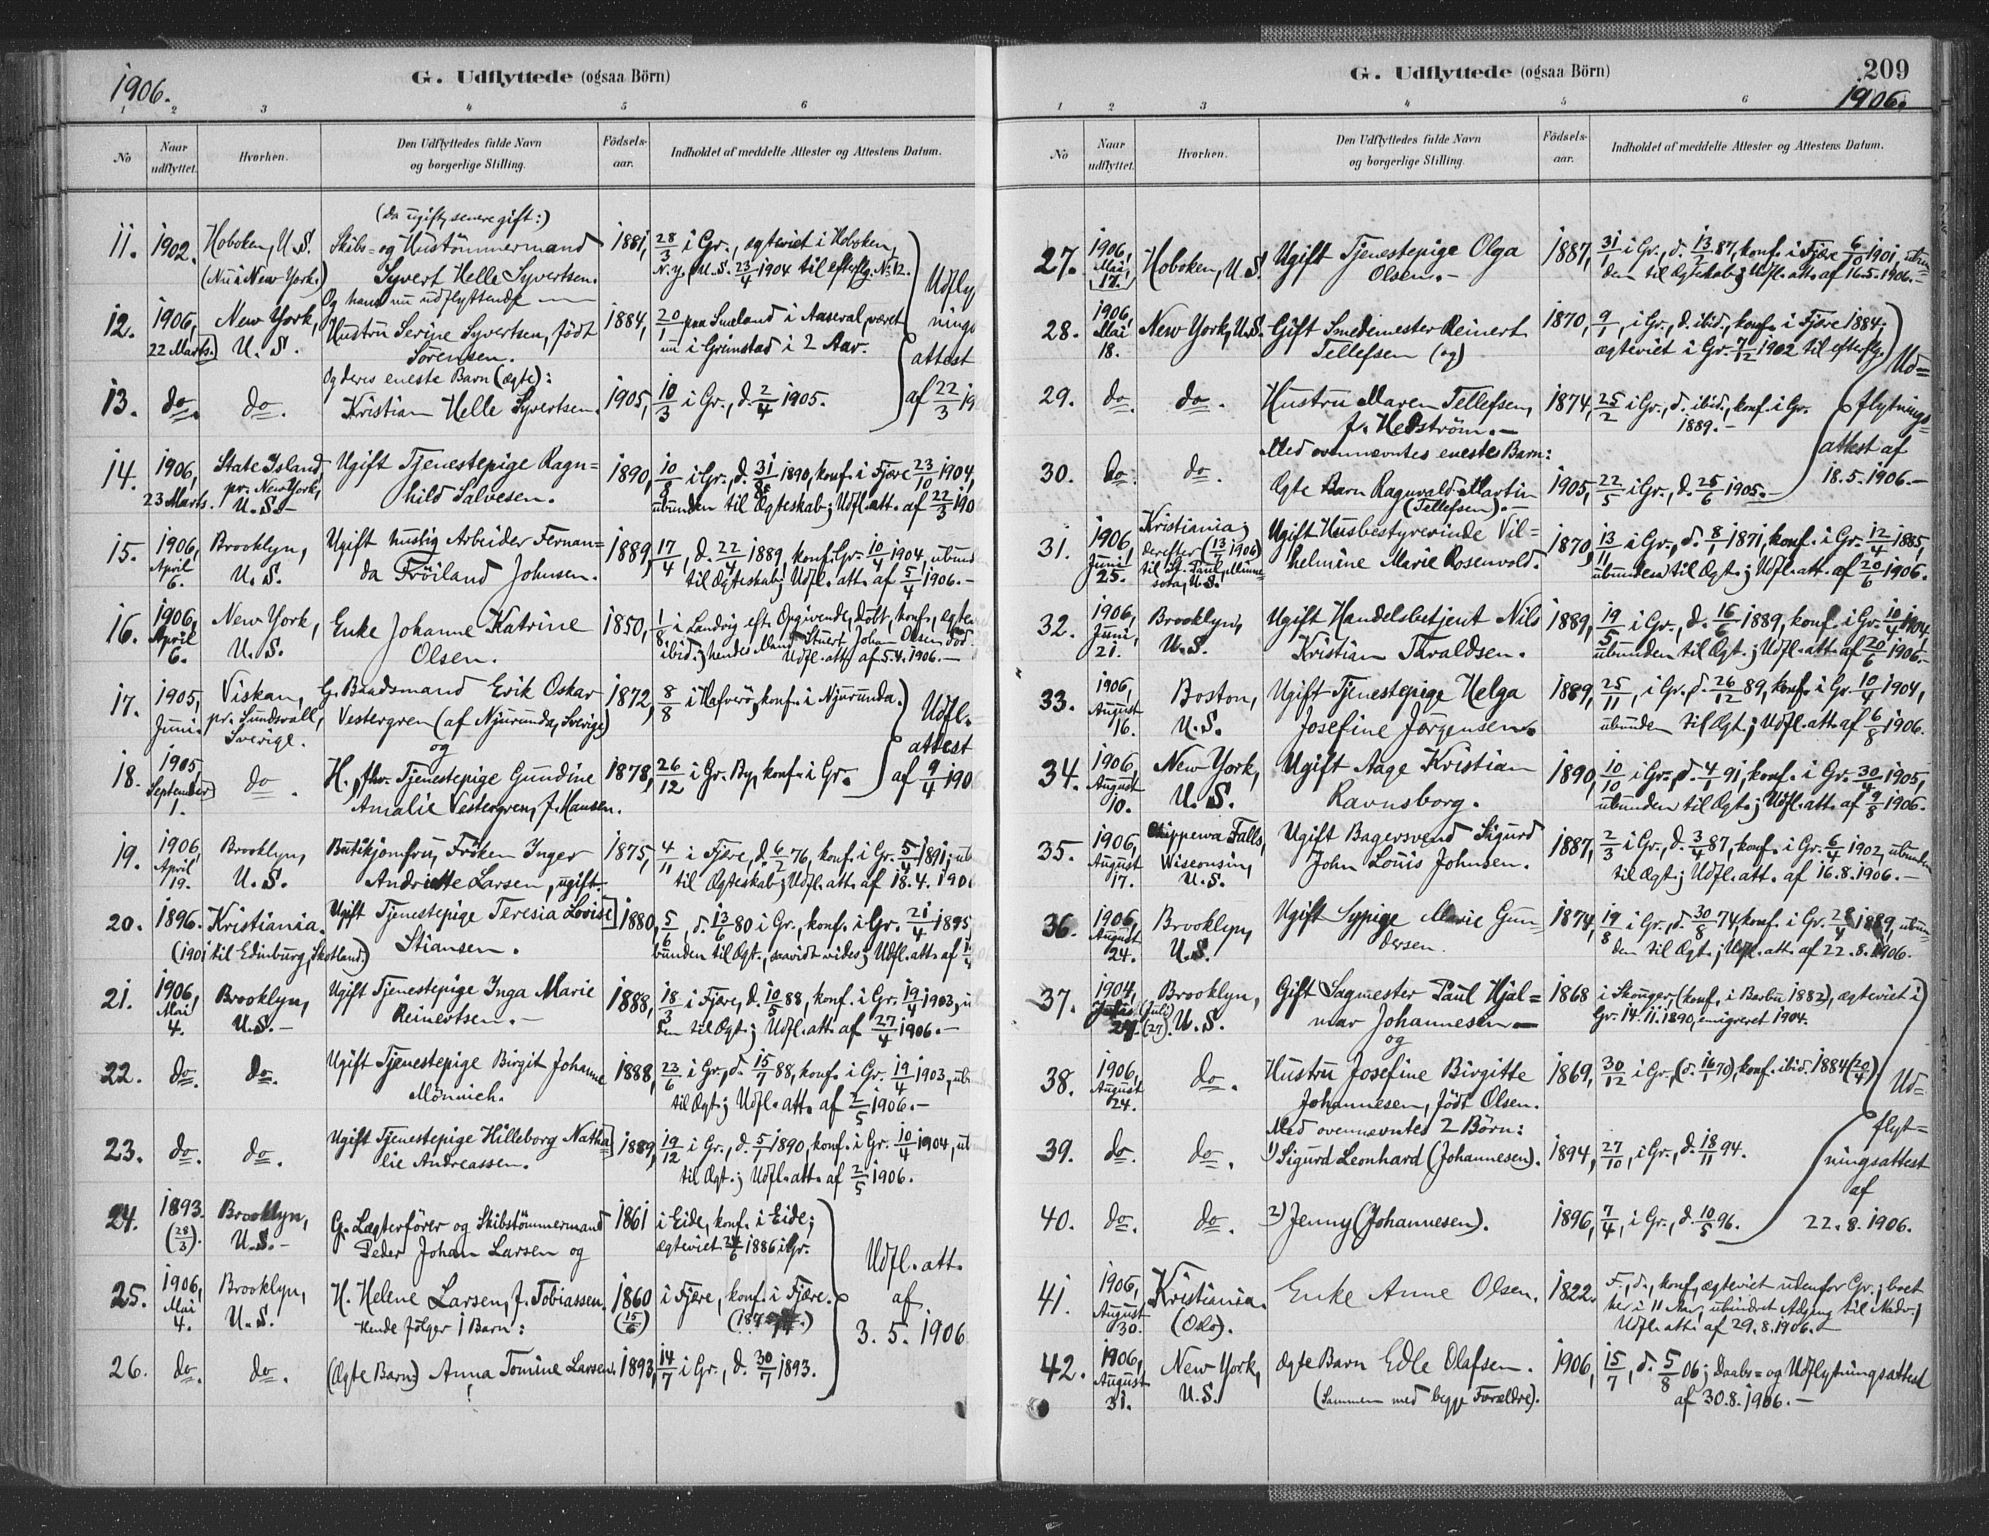 1906.
G. Udflyttede (ogsaa Börn)
1 2 3 4 5 6
No
Naar udflyttet.
Hvorhen.
Den Udflyttedes fulde Navn og borgerlige Stilling.
Födsels-aar.
Indholdet af meddelte Attester og Attestens Datum.
(da ugift, senere gift:)
11. 1902. Hoboken, U.S. Skibs- og Hustömmermand 1881, 28/3 i Gr., ægteviet i Hoboken,
(Nu i New York.) Syvert Helle Syvertsen. N.y., U.S. 23/4 1904 til efterflg. No 12.
Og hans nu udflyttende
12. 1906, New York, Hustru Serine Syvertsen, født 1884, 20/1 paa Smeland i Aaseral, været
22 Marts. U.S. Sörensen. nu i Grimstad i 2 Aar.
Og deres eneste Barn (ægte):
13. do. do. Kristian Helle Syvertsen. 1905, 10/3 i Gr., d. 2/4 1905.
attest
af 22/3
14. 1906, State Island, Ugift Tjenestepige Ragn= 1890, 10/8 i Gr., d. 31/8 1890, konf. i Fjære 23/10 1904,
23 Marts. pr. New York, U.S.- hild Salvesen. ubunden til Ægteskab; Udfl. att. af 22/3 190
15. 1906, Brooklyn, Ugift huslig Arbeider Fernan= 1889, 17/4, d. 22/4 1889, konf. Gr. 10/4 1904, ubund
April 6. U.S. da Fröiland Johnsen. til Ægteskab; Udfl. att. af 5/4 1906.-
16. 1906, New York, Enke Johanne Katrine 1850, 1/8 i Landvig eft. Opgivende, döbt, konf., ægte
April 6. U.S. Olsen. ibid.; hendes Mand Stuert John Olsen död
Udfl. att. af 5.4.1906.-
17. 1905, Viskan, G. Baadsmand Erik Oskar 1872, 8/8 i Hafverö, konf. i Njurunda.
Juni. pr. Sundsvall, Sverige. Vestergren (af Njurunda, Sverige)
og
18. 1905, do. H. fhv. Tjenestepige Gundine 1878, 26/12 i Gr. By, konf. i Gr.
September 1. Amalie Vestergren, f. Hansen.
Udfl.-
attest
af 9/4 190
19. 1906, Brooklyn, Butikjomfru, Fröken Inger 1875, 4/11 i Fjære, d. 6/2 76, konf. i Gr. 5/4 1891; ub
April 19. U.S. Andriette Larsen, ugift. til Ægteskab; Udfl. att. af 18.4.190
20. 1896. Kristiania. Ugift Tjenestepige Teresia Lovise 1880, 5/6, d. 13/6 80 i Gr., konf. i Gr. 21/4 1895
(1901 til Edinburg, Skotland.) Stiansen. bunden til Ægt., saavidt vides; Udfl. att. af
21. 1906, Brooklyn, Ugift Tjenestepige Inga Marie 1888, 18/3 i Fjære, d. 10/5 88, konf. i Gr. 19/4 1903, u
Mai 4. U.S.- Reinertsen.- den til Ægt.; Udfl. att. af 27/4 1906.-
22. do. do. Ugift Tjenestepige Birgit Johanne 1888, 23/6 i Gr., d. 15/7 88, konf. i Gr. 19/4 1903, ub
Mönnich. til Ægt.; Udfl. att. af 2/5 1906.-
23. do. do. Ugift Tjenestepige Hilleborg Natha= 1889, 19/12 i Gr., d. 5/1 1890, konf. i Gr. 10/4 1904, ub
lie Andreassen. til Ægt.; Udfl. att. af 2/5 1906.
24. 1893. Brooklyn, G. Lægterförer og Skibstömmermand 1861 i Eide, konf. i Eide;
(28/3). U.S.- Peder Johan Larsen og ægteviet 1886 i Gr.
25. 1906, Brooklyn, H. Helene Larsen, f. Tobiassen. 1860 i Fjære, konf. i Fjære.
Mai 4. U.S. Hende fölger 1 Barn: (15/6)
26. do. do. (Ægte Barn:) Anna Tomine Larsen. 1893, 14/7 i Gr., d. 30/7 1893.
Udfl. att.
af
3. 5. 1906
G. Udflyttede (ogsaa Börn)
209
1906.
1 2 3 4 5 6
No
Naar udflyttet.
Hvorhen.
Den Udflyttedes fulde Navn og borgerlige Stilling.
Födsels-aar.
Indholdet af meddelte Attester og Attestens Datum.
27. 1906, Hoboken, U.S. Ugift Tjenestepige Olga 1887, 31/1 i Gr., d. 13/2 87, konf. i Fjære 6/10 1901, ubun=
Mai 17. Olsen.- den til Ægteskab; Udfl. att. af 16.5.1906.-
28. 1906, New York, U.S. Gift Smedemester Reinert 1870, 9/1, i Gr., d. ibid., konf. i Fjære 1884;
Mai 18. Tellefsen (og) ægteviet i Gr. 7/12 1902 til efterflg.
29. do. do. Hustru Maren Tellefsen, 1874, 25/2 i Gr., d. ibid., konf. i Gr.
f. Hedström.- 1889.-
Med ovennævntes eneste Barn:
30. do. do. Ægte Barn Ragnvald Martin 1905, 22/5 i Gr., d. 25/6 1905.-
(Tellefsen).-
Ud=
flytnings=
attest af
18.5.1906.-
31. 1906, Kristiania; Ugift Husbestyrerinde Vil= 1870, 13/11 i Gr., d. 8/1 1871, konf. i Gr. 12/4 1885,
Juni 25. derefter (13/7 1906) til St. Paul, Minnesota, U.S. helmine Marie Rosenvold. ubunden til Ægt.; Udfl. att. af 20/6 1906.
32. 1906, Brooklyn, Ugift Handelsbetjent Nils 1889, 19/5 i Gr., d. 16/6 1889, konf. i Gr. 10/4 1904,
Juni, 21. U.S. Kristian Taraldsen. ubunden til Ægt.; Udfl. att. af 20/6 1906.-
33. 1906, Boston, Ugift Tjenestepige Helga 1889, 25/11, i Gr. d. 26/12 89, konf. i Gr. 10/4 1904,
August 16. U.S. Josefine Jørgensen. ubunden til Ægt.; Udfl. att. af 6/8 1906.
34. 1906, New York, Ugift Aage Kristian 1890, 10/10 i Gr., d. 4/1 91, konf. i Gr. 30/4 1905,
August 10. U.S. Ravnsborg. ubunden til Ægt.; Udfl. att. af 9/8 1906.
35. 1906, Chippewa Falls, Ugift Bagersvend Sigurd 1887, 2/3 i Gr., d. 3/4 87, konf. i Gr. 6/4 1902, ubunden
August 17. Wisconsin, U.S. John Louis Johnsen. til Ægt.; Udfl. att. af 16.8.1906.-
36. 1906, Brooklyn, Ugift Sypige Marie Gun= 1874, 19/8 i Gr., d. 30/8 74, konf. i Gr. 28/4 1889, ubun=
August 24. U.S. dersen. den til Ægt.; Udfl. att. af 22.8.1906.
37. 1904, Brooklyn, Gift Sagmester Paul Hjal= 1868 i Skouger, (konf. i Barbu 1882), ægteviet i
(Juli) (27). U.S. mar Johannesen - Gr. 14.11.1890, emigreret 1904.
og
38. 1906, do. Hustru Josefine Birgitte 1869, 30/12 i Gr., (d. 16/1 70), konf. ibid. 1884 (20/4)
August 24. Johannesen, født Olsen.
Med ovennævntes 2 Börn:
39. do. do. 1) Sigurd Leonhard (Johannesen). 1894, 27/10, i Gr., d. 18/11 94.
40. do. do. 2) Jenny (Johannesen). 1896, 7/4, i Gr., d. 10/5 96.
Ud=
flyt=
ningsattest
af
22.8.1906.
41. 1906, Kristiania. Enke Anne Olsen. 1822. F., d., konf., ægteviet udenfor Gr.; boet
August 30. (Oslo). her i 11 Aar, ubindret Adgang til Nadv.;
Udfl. att. af 29.8.1906.-
42. 1906, New York, Ægte Barn Edle Olafsen. 1906, 15/7, d. 5/8 06; Daabs= og Udflytningsattest
August 31. U.S. (Sammen med begge Forældre). af 30.8.1906.-